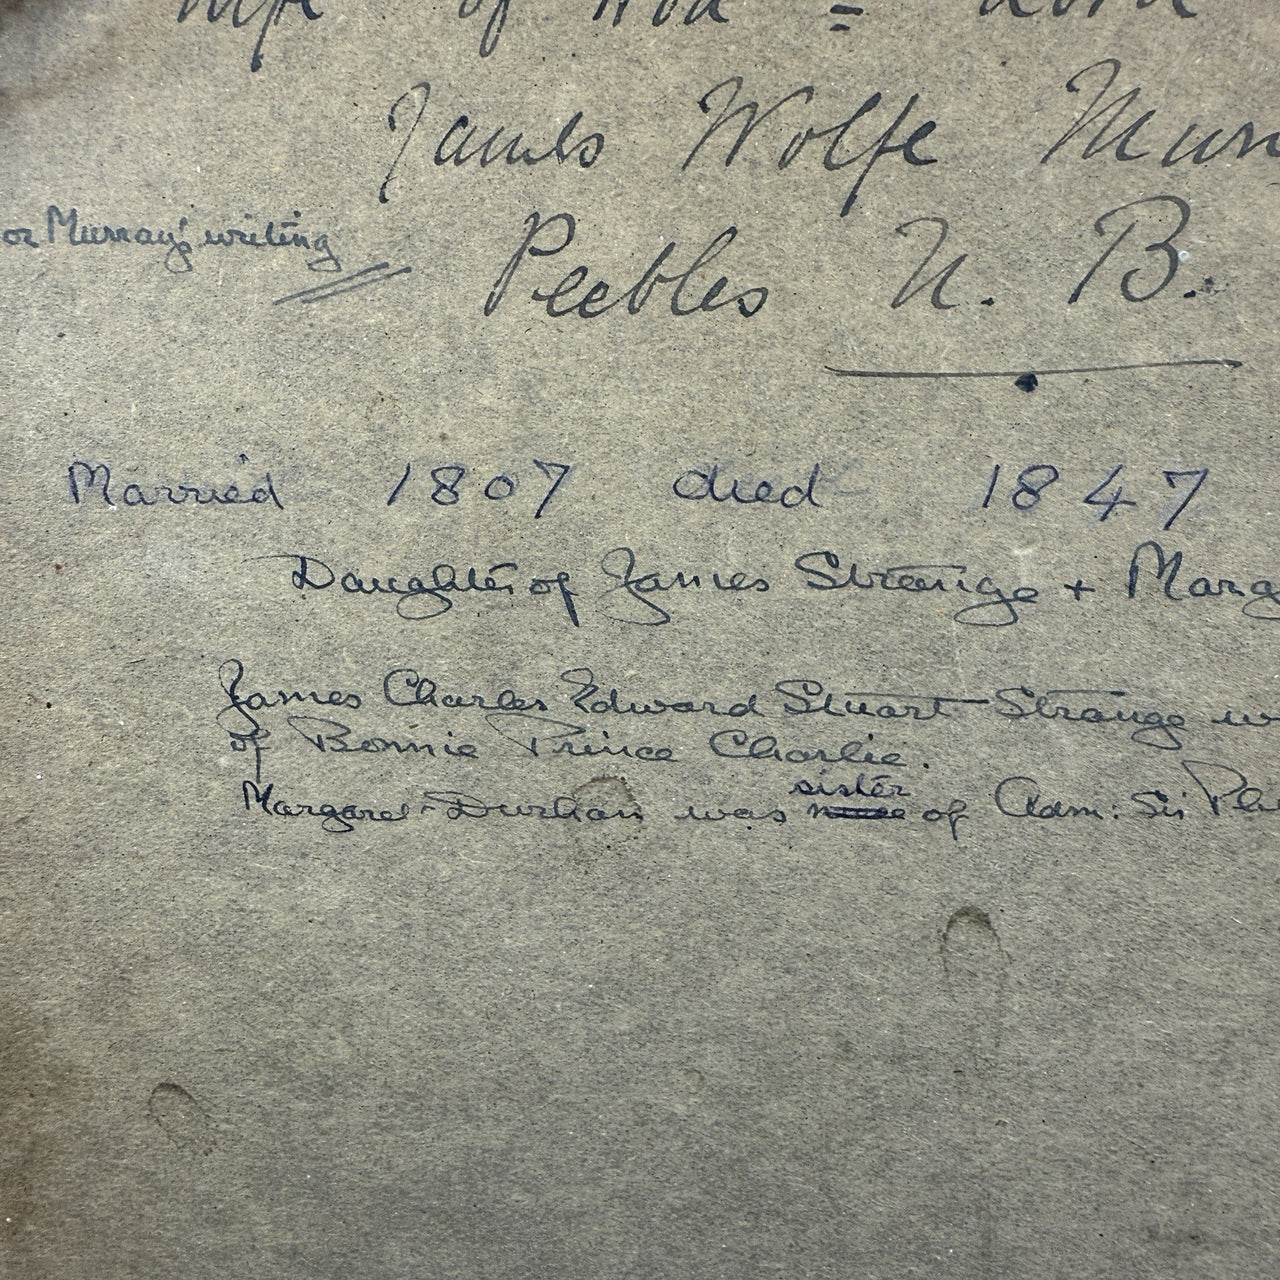 wife of Hon = Lord
James Wolfe Murr
or Murray's writing
Peebles N. B.
Married 1807 died 1847
Daughter of James Strange + Marg
James Charles Edward Stuart Strange w
of Bonnie Prince Charlie.
sister
Margaret Durham was of Adm: Sir Phi